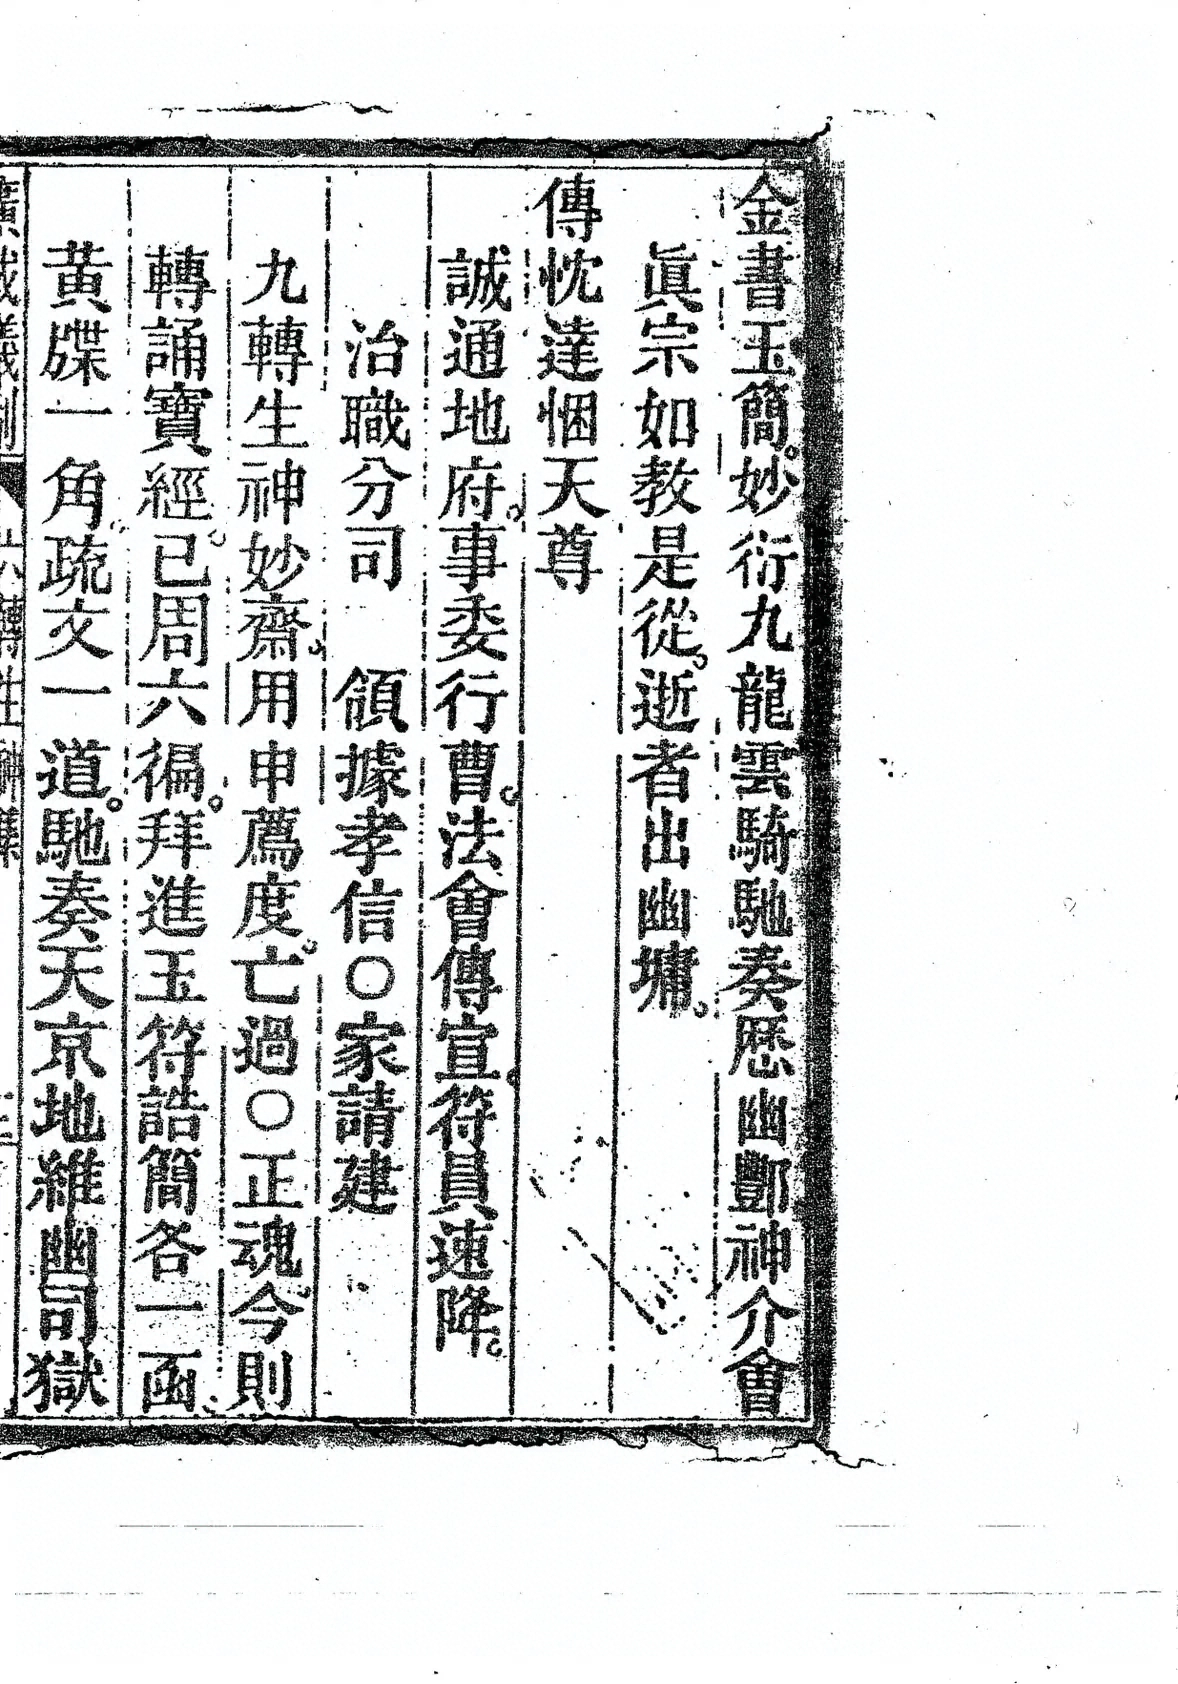 金書玉簡。妙衍九龍雲騎馳奏歷幽酆神介會
眞宗如教是從。逝者出幽墉。
傳忱達悃天尊
誠通地府。事委行曹。法會傳宣。符員速降。
治職分司　領據孝信〇家請建
九轉生神妙齋。用申薦度。亡過〇正魂。今則
轉誦寶經。已周六徧。拜進玉符誥簡各一函
黃牒一角。疏文一道。馳奏天京地維幽司獄
廣成儀制 六轉生神